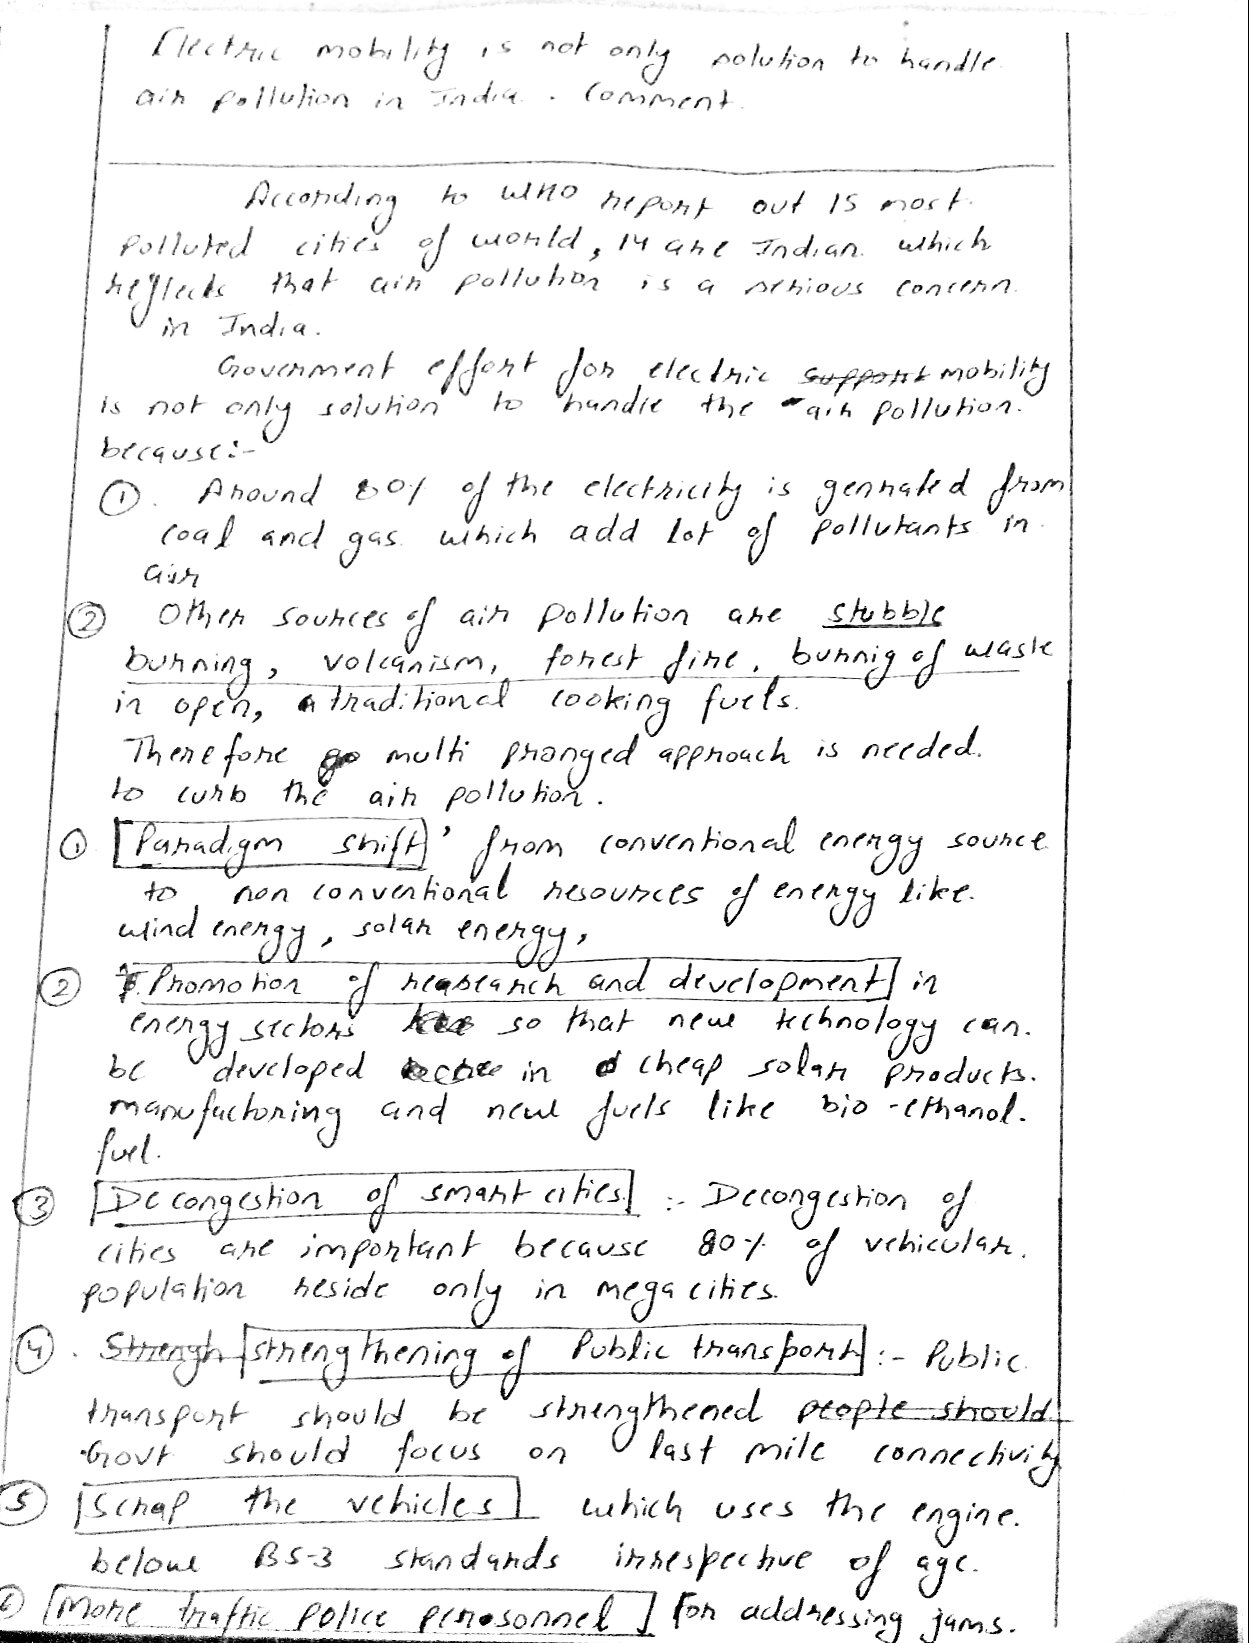 Electric mobility is not only solution to handle
air pollution in India. Comment.
According to WHO report out 15 most
polluted cities of world, 14 are Indian which
reflects that air pollution is a serious concern
in India.
Government effort for electric support mobility
is not only solution to handle the air pollution.
because:-
① Around 80% of the electricity is genrated from
coal and gas which add lot of pollutants in
air
② Other sources of air pollution are stubble
burning, volcanism, forest fire, burnig of waste
in open, traditional cooking fuels.
Therefore multi pronged approach is needed.
to curb the air pollution.
① Paradigm shift' from conventional energy source
to non conventional resources of energy like.
wind energy, solar energy,
② Promotion of reasearch and development in
energy sectors so that new technology can.
be developed in cheap solar products.
manufactoring and new fuels like bio-ethanol.
fuel.
③ Decongestion of smart cities :- Decongestion of
cities are important because 80% of vehicular.
population reside only in mega cities.
④. Strengh strengthening of Public transport :- Public
transport should be strengthened people should
Govt should focus on last mile connectivity
⑤ Scrap the vehicles which uses the engine.
below BS-3 standards irrespective of age.
⑥ More traffic police personnel for addressing jams.